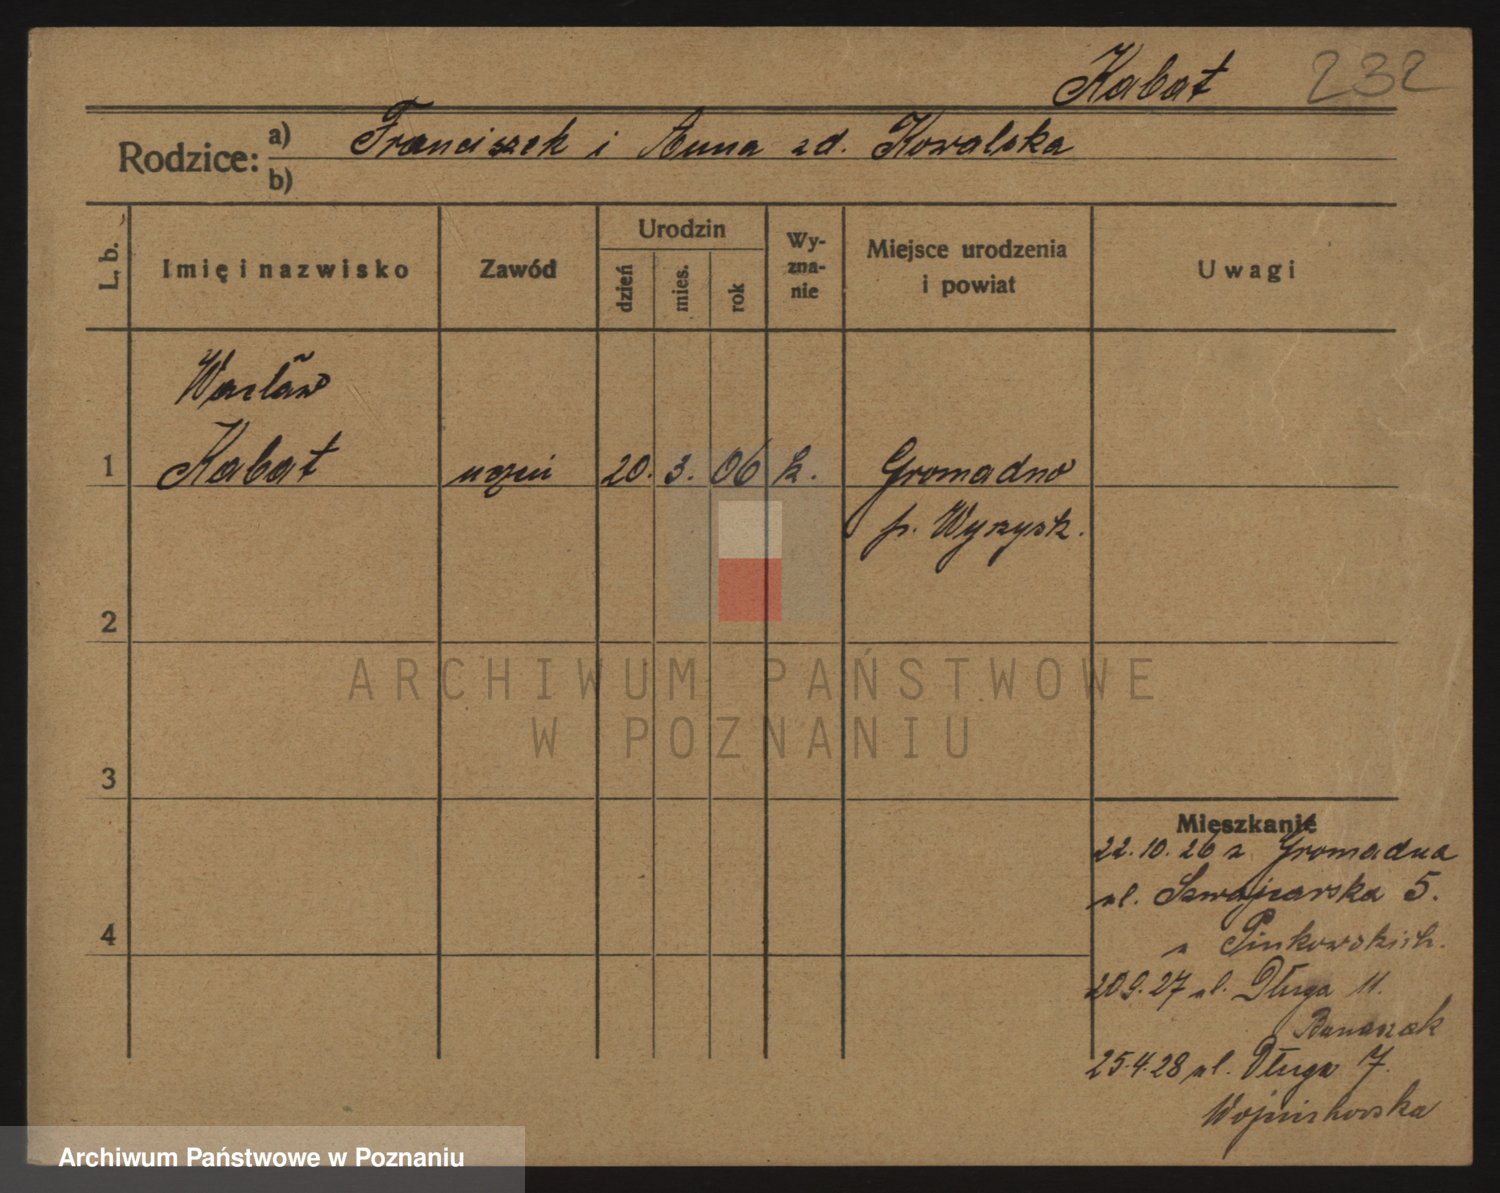 Kabat 232
Rodzice: a) Franciszek i Anna zd. Kowalska
b)
L. b.
Imię i nazwisko
Zawód
Urodzin
dzień
mies.
rok
Wy-
zna-
nie
Miejsce urodzenia
i powiat
Uwagi
Wacław
1 Kabat 20. 3. 06 k. Gromadno
p. Wyrzysk.
2
3
4
Mieszkanie
22.10.26 z Gromadna
ul. Szwajcarska 5.
u Pinkowskich.
20.9.27 ul. Długa 11.
Banaszak
25.4.28 ul. Długa 7.
ARCHIWUM PAŃSTWOWE
W POZNANIU
Archiwum Państwowe w Poznaniu